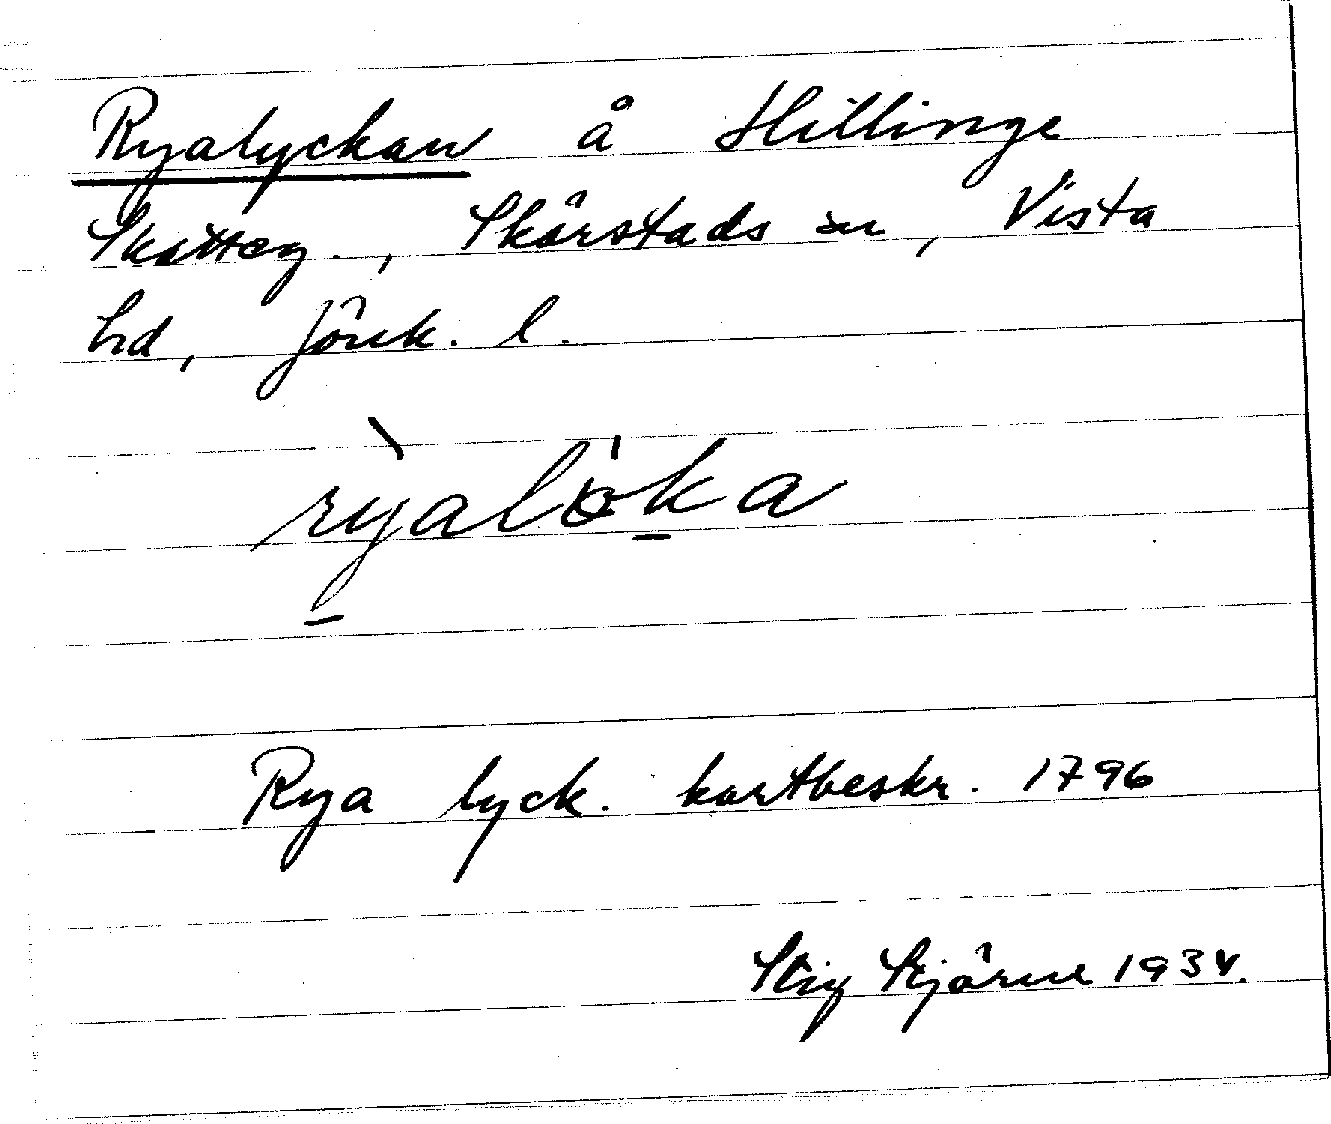 Ryalyckan å Hillinge
Skatteg., Skärstads sn, Vista
hd, Jönk. l.
rỳ̠alök̠a
Rya lyck. kartbeskr. 1796
Stig Stjärne 1934.